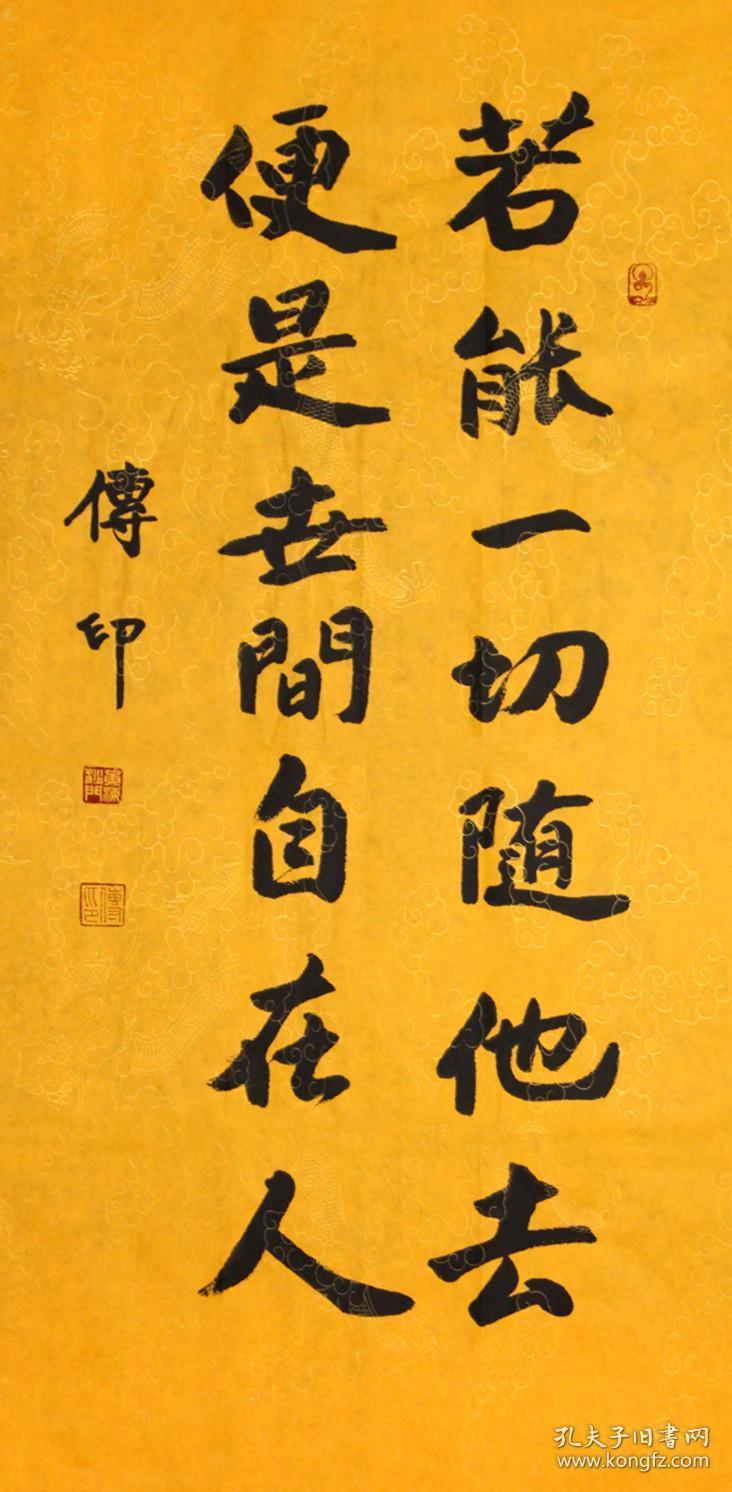 若能一切随他去
便是世間自在人
傳印
孔夫子旧書网
www.kongfz.com